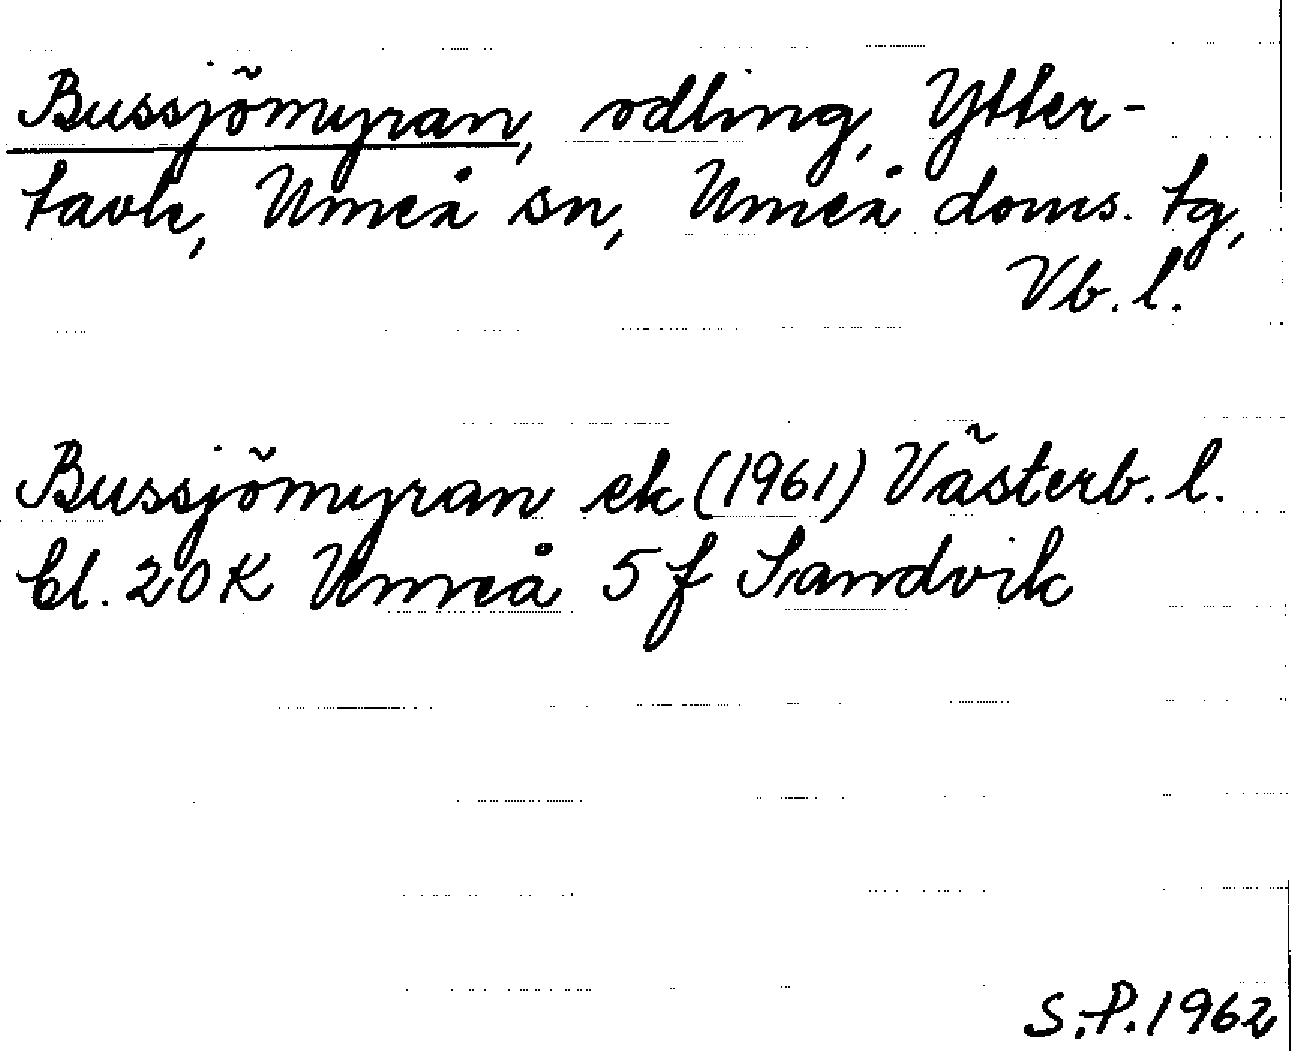 Bussjömyran, odling, Ytter-
tavle, Umeå sn, Umeå doms. tg,
Vb. l.
Bussjömyran ek (1961) Västerb. l.
bl. 20 K Umeå 5 f Sandvik
S.P. 1962